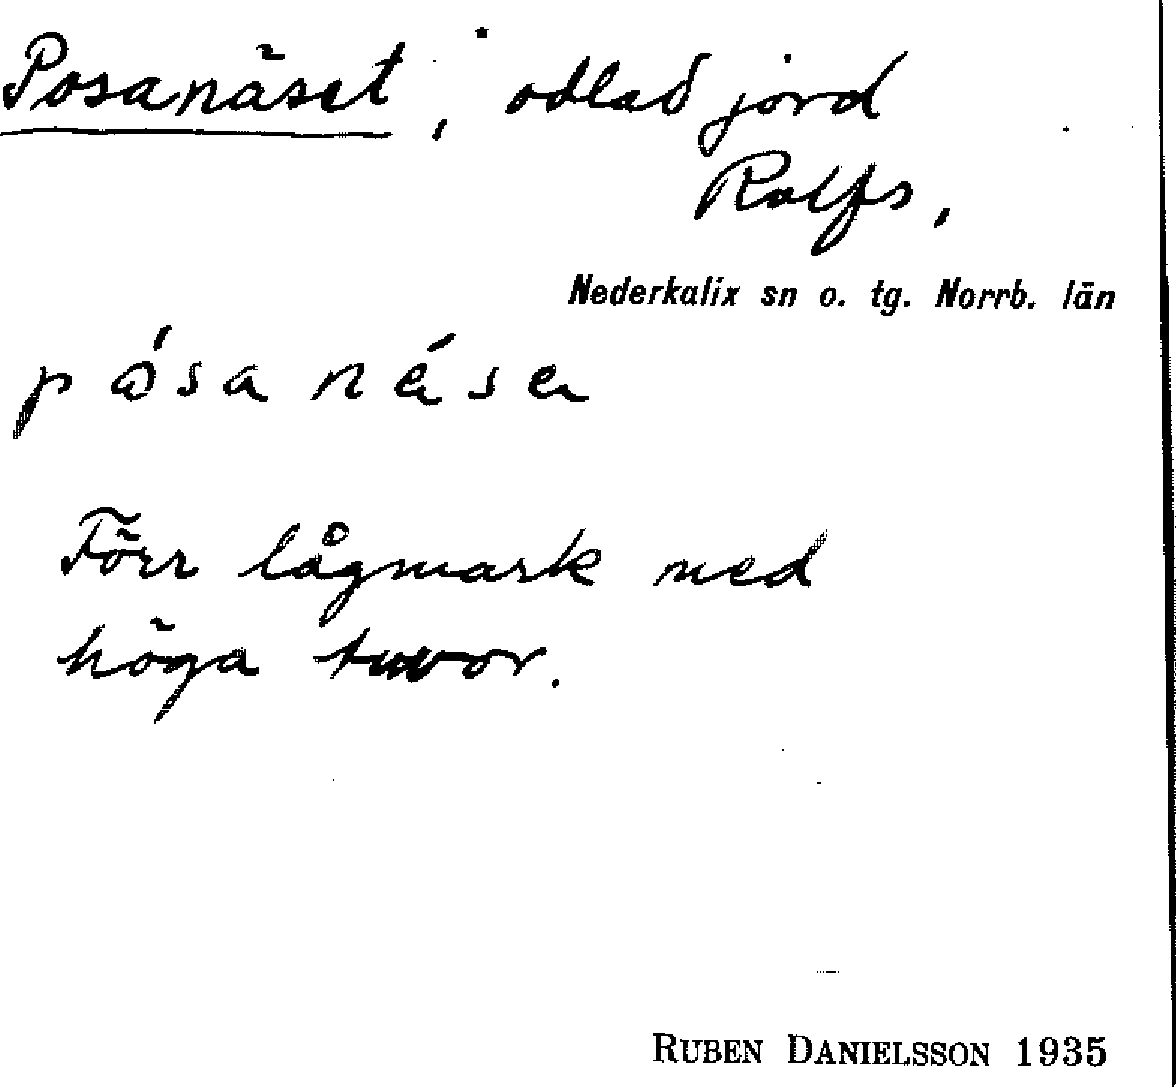 Posanäset, odlad jord
Rolfs,
Nederkalix sn o. tg. Norrb. län
påsa näsen
Förr lågmark med
höga tuvor.
RUBEN DANIELSSON 1935